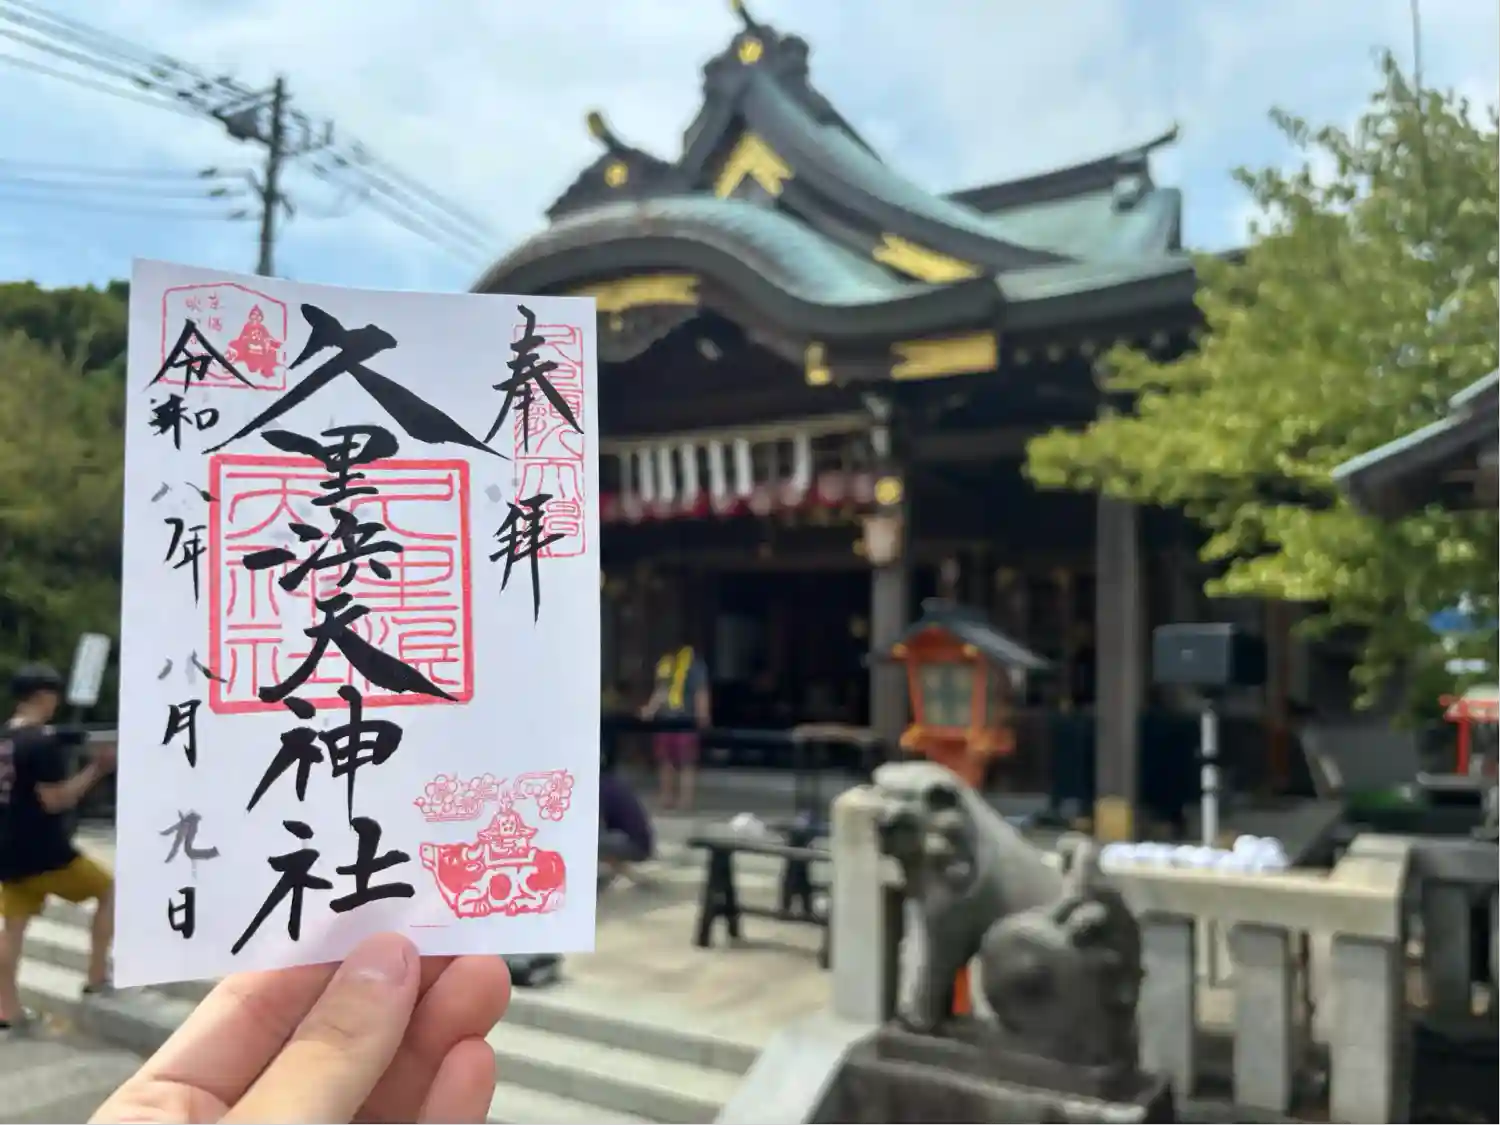 奉拝
久里浜天神社
令和八年八月九日
久里浜天神社